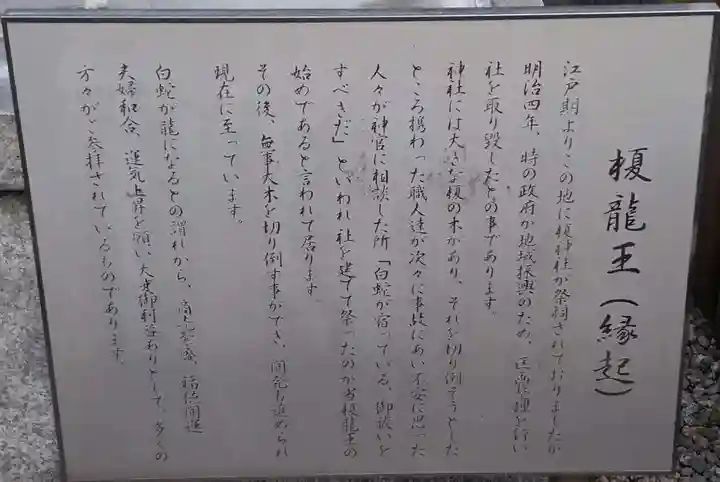 榎龍王(縁起)
江戸期よりこの地に榎神社が祭祠されておりましたが
明治四年、時の政府が地域振興のため、区画整理を行い
社を取り毀したとの事であります。
神社には大きな榎の木があり、それを切り倒そうとした
ところ携わった職人達が次々に事故にあい不安に思った
人々が神官に相談した所「白蛇が宿っている、御祓いを
すべきだ」といわれ社を建てて祭ったのが当榎龍王の
始めであると言われて居ります。
その後、無事大木を切り倒す事ができ、開発も進められ
現在に至っています。
白蛇が龍になるとの謂れから、商売繁盛、福徳開運
夫婦和合、運気上昇を願い大変御利益ありとして、多くの
方々がご参拝されているものであります。